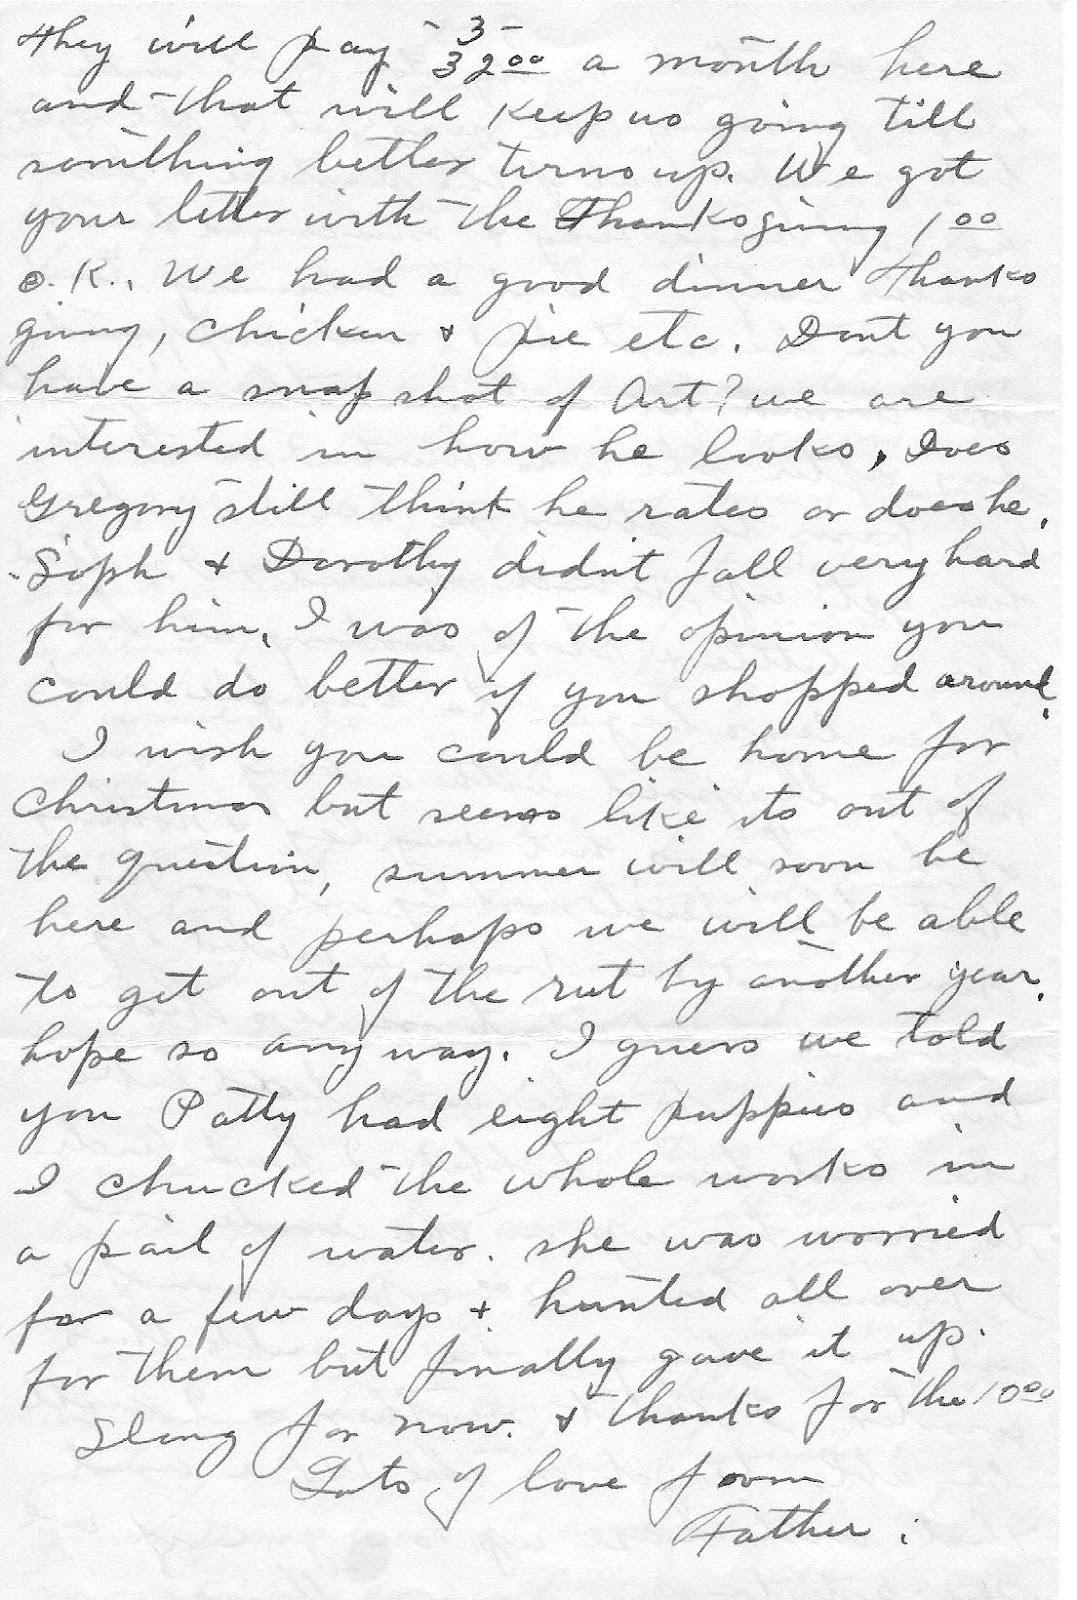 -3-
They will pay 32.00 a month here
and that will keep us going till
somithing better turns up. We got
your letter with the Thanksgiving 1.00
O.K., We had a good dinner thanks
giving, chicken & pie etc. Dont you
have a snap shot of Art? we are
interested in how he looks, Does
Gregory still think he rates or does he.
Soph & Dorothy didn't fall very hard
for him, I was of the opinion you
could do better if you shopped around.
I wish you could be home for
Christmas but seems like its out of
the question, summer will soon be
here and perhaps we will be able
to get out of the rut by another year.
hope so any way. I guess we told
you Patty had eight puppies and
I chucked the whole works in
a pail of water. she was worried
for a few days & hunted all over
for them but finally gave it up.
Slong for now. & thanks for the 10.00
Lots of love from
Father.